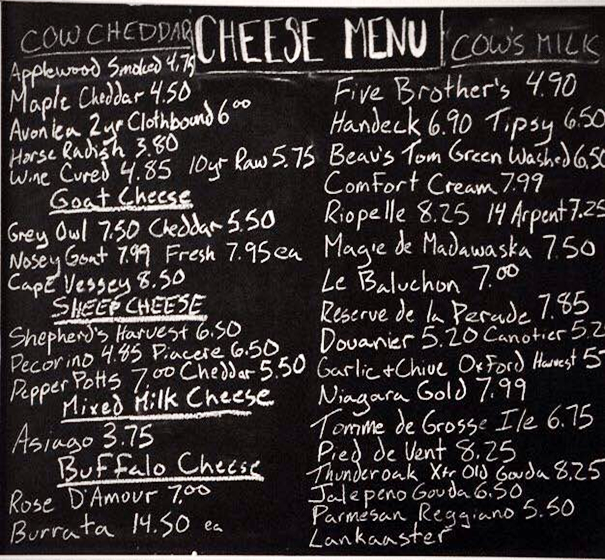 COW CHEDDAR
CHEESE MENU
COW'S MILK
Applewood Smoked 4.75
Maple Cheddar 4.50
Avonlea 2yr Clothbound 6⁰⁰
Horse Radish 3.80
Wine Cured 4.85 10yr Raw 5.75
Goat Cheese
Grey Owl 7.50 Cheddar 5.50
Nosey Goat 7.99 Fresh 7.95 ea
Cape Vessey 8.50
SHEEP CHEESE
Shepherd's Harvest 6.50
Pecorino 4.85 Piacere 6.50
Pepper Potts 7.00 Cheddar 5.50
Mixed Milk Cheese
Asiago 3.75
Buffalo Cheese
Rose D'Amour 7.00
Burrata 14.50 ea
Five Brother's 4.90
Handeck 6.90 Tipsy 6.50
Beau's Tom Green Washed 6.50
Comfort Cream 7.99
Riopelle 8.25 14 Arpent 7.25
Magie de Madawaska 7.50
Le Baluchon 7.⁰⁰
Reserve de la Perade 7.85
Douanier 5.20 Canotier 5.2
Garlic + Chive Oxford Harvest 5
Niagara Gold 7.99
Tomme de Grosse Ile 6.75
Pied de Vent 8.25
Thunderoak Xtr Old Gouda 8.25
Jalepeno Gouda 6.50
Parmesan Reggiano 5.50
Lankaaster